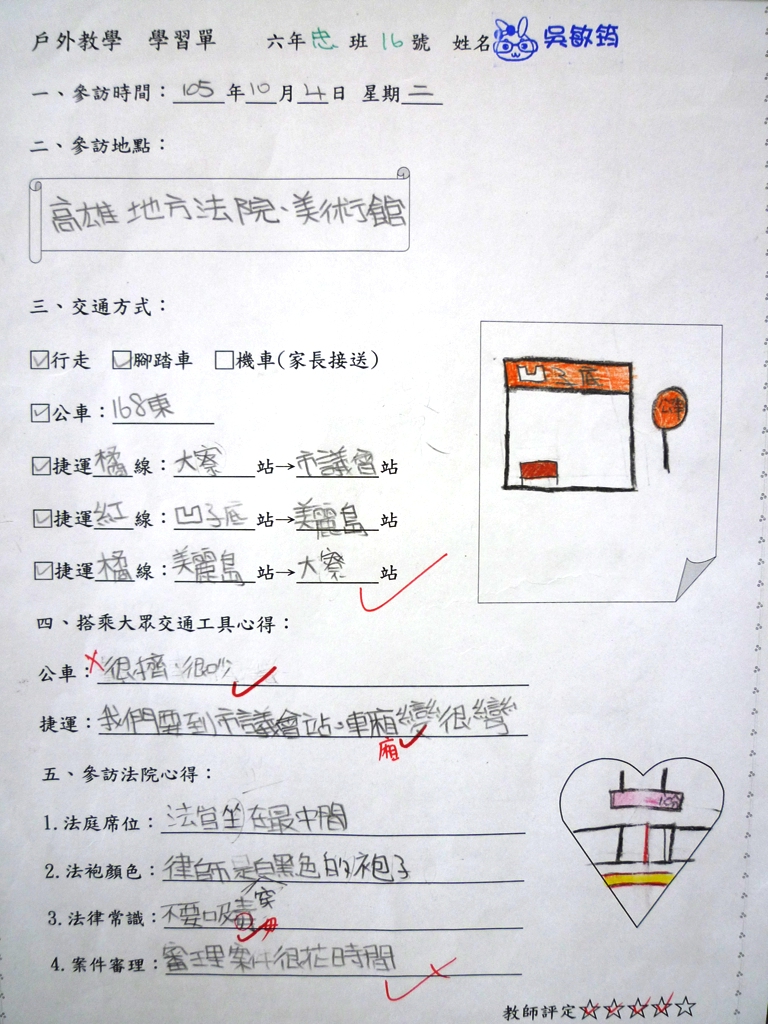 戶外教學 學習單 六年忠班16號 姓名 吳敏筠
一、參訪時間：105年10月4日 星期二
二、參訪地點：
高雄地方法院、美術館
三、交通方式：
☑行走 ☑腳踏車 □機車(家長接送)
☑公車：168東
☑捷運橘線：大寮站→市議會站
☑捷運紅線：凹子底站→美麗島站
☑捷運橘線：美麗島站→大寮站
凹子底
四、搭乘大眾交通工具心得：
公車：很擠、很吵
捷運：我們要到市議會站、車廂變很彎
廂
五、參訪法院心得：
1.法庭席位：法官坐在最中間
2.法袍顏色：律師是穿黑色的袍子
3.法律常識：不要吸毒
4.案件審理：審理案件很花時間
教師評定☆☆☆☆☆